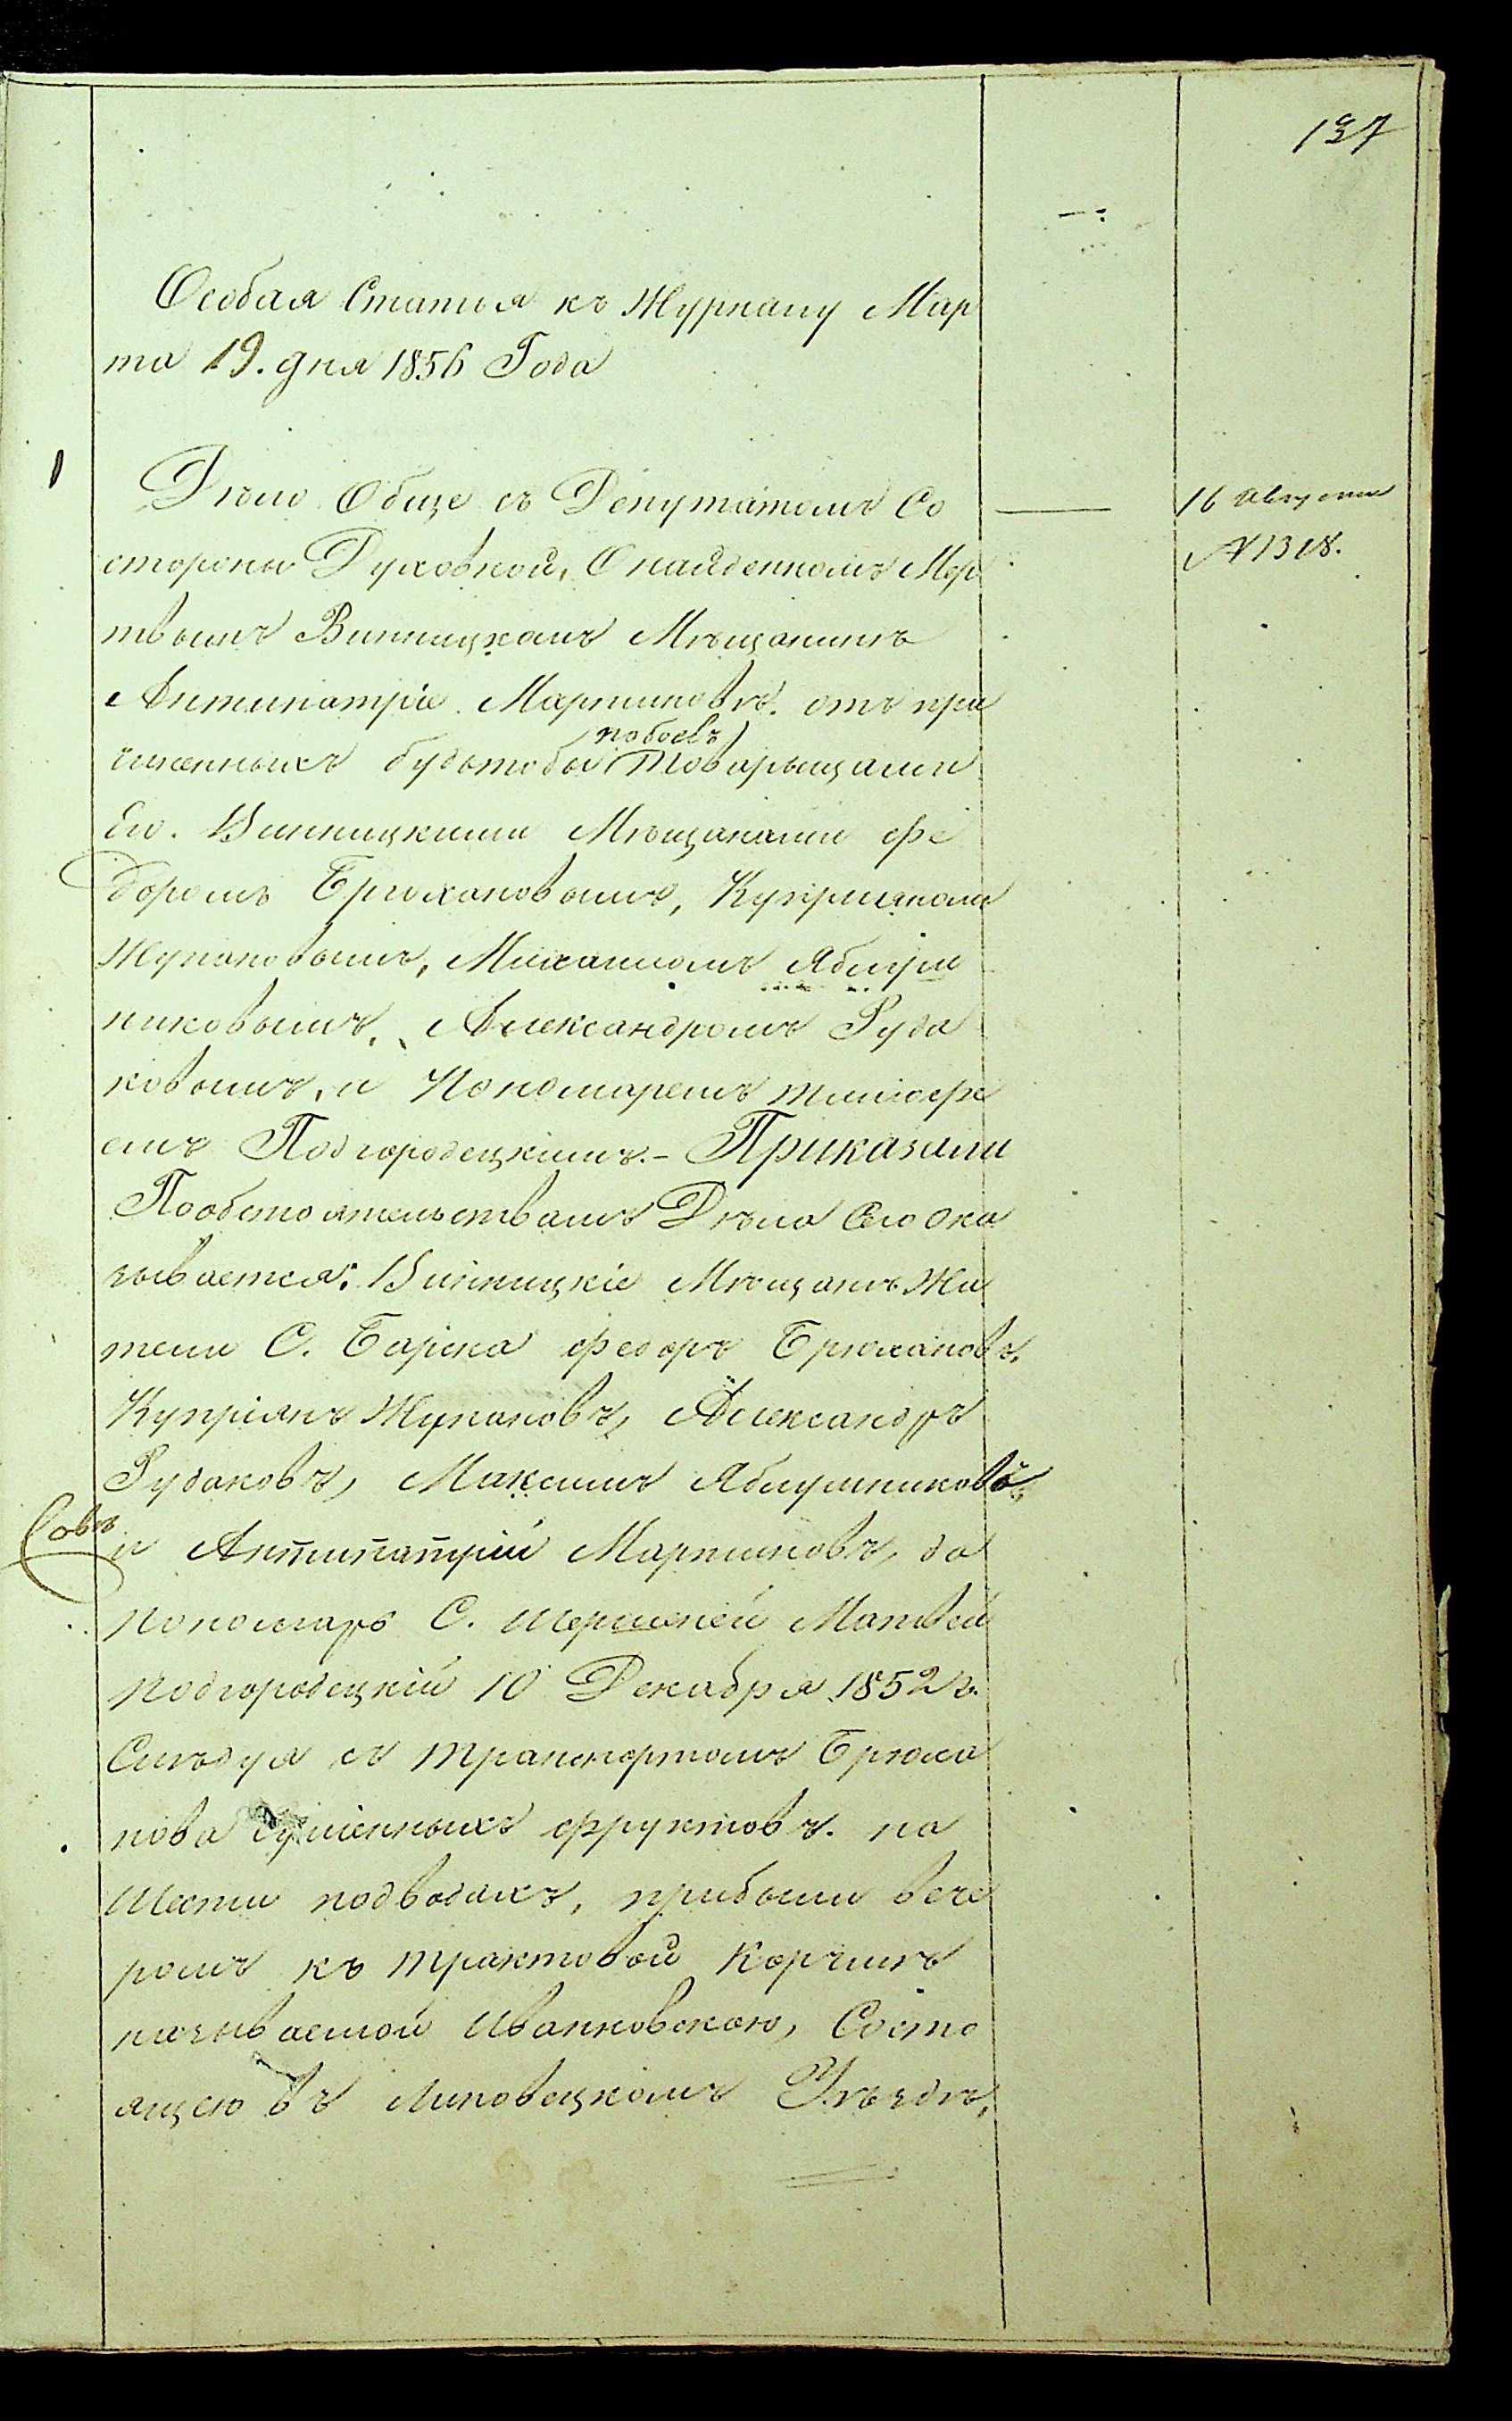 137
Особая Статья къ Журналу Мар
та 19. дня 1856 Года
1
Дѣло Обще съ Депутатомъ Со
16 Августа
стороны Духовной, О найденномъ Мер
№ 1318.
твымъ Винницкомъ Мѣщанинѣ
Антипатріе Мартиновѣ. отъ при
побоевъ
чиненныхъ будьтобы Товарыщами
Его. Винницкими Мѣщанами Фе
доромъ Брюхановымъ, Купріяномъ
Жупановымъ, Михаиломъ Яблуш
никовымъ, Александромъ Руда
ковымъ, и Пономаремъ Тимофе
емъ Подгородецкимъ. - Приказали
Пообстоятельствамъ Дѣла Сего Ока
зывается: Винницкіе Мѣщане Жи
тели С. Борска Федоръ Брюхановъ,
Купріянъ Жупановъ, Александръ
Рудаковъ, Максимъ Яблушниковъ,
и Антипатрій Мартиновъ, да
Пономарь С. Шершней Матвей
Подгородецкій 10 Декабря 1852 г.
Слѣдуя съ транспортомъ Брюха
нова сушенныхъ фруктовъ. на
Шести подводахъ, прибыли вече
ромъ къ трактовой Корчмѣ
называемой Иванковскою, Состо
ящею въ Липовецкомъ Уѣздѣ,